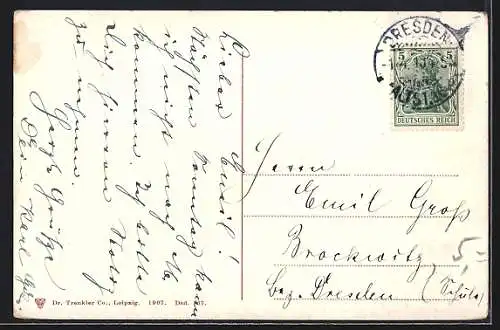 Lieber Emil!
Nächsten Sonntag kann
ich nicht nach
kommen. Ich bitte
Dich
zu nehmen.
Herzl. Grüße
Dein Karl
DRESDEN
5 5
DEUTSCHES REICH
Herrn
Emil Groß
Brockwitz
bez. Dresden (Schule)
5-
Dr. Trenkler Co., Leipzig. 1907. Dsd. 37.